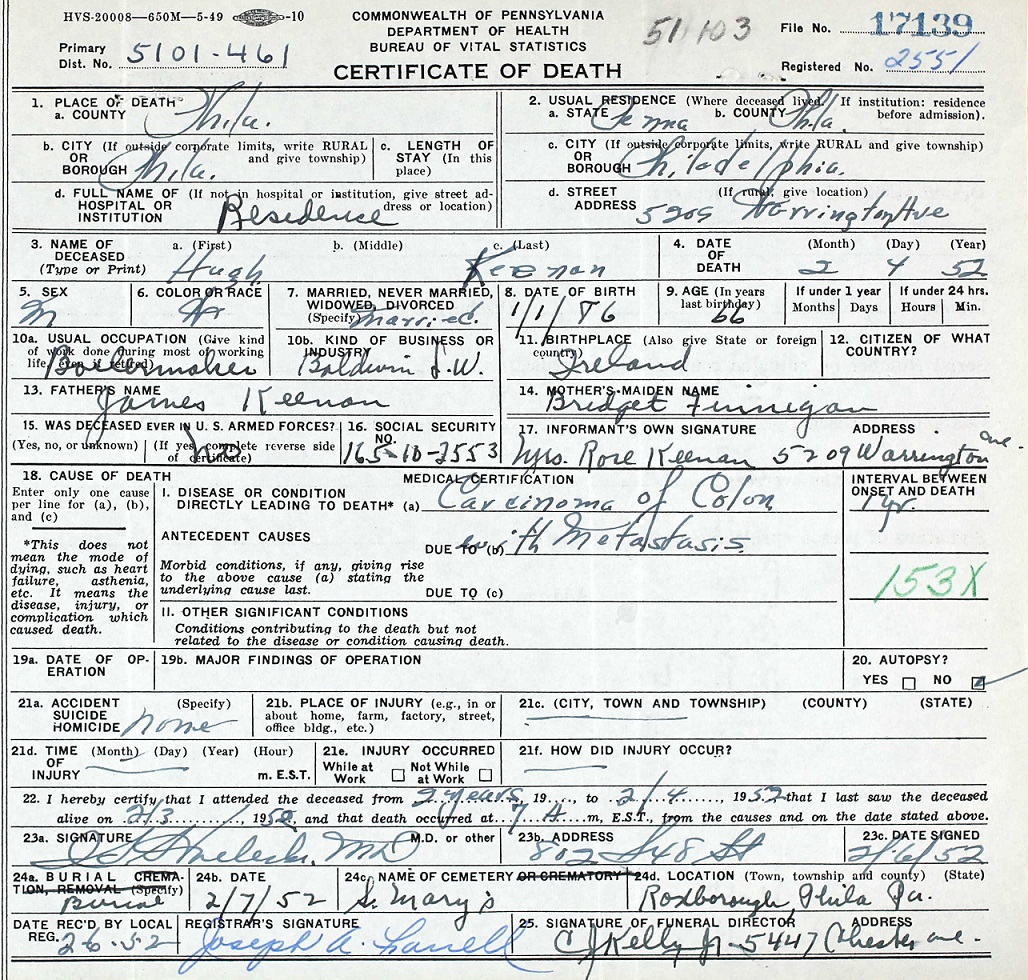 HVS-20008—650M—5-49 -10
COMMONWEALTH OF PENNSYLVANIA
DEPARTMENT OF HEALTH
BUREAU OF VITAL STATISTICS
CERTIFICATE OF DEATH
51103
File No. 17139
Primary Dist. No. 5101-461
Registered No. 2551
1. PLACE OF DEATH
a. COUNTY Phila.
b. CITY (If outside corporate limits, write RURAL OR and give township) BOROUGH Phila.
c. LENGTH OF STAY (In this place)
d. FULL NAME OF (If not in hospital or institution, give street address or location) HOSPITAL OR INSTITUTION Residence
2. USUAL RESIDENCE (Where deceased lived. If institution: residence before admission).
a. STATE Penna b. COUNTY Phila.
c. CITY (If outside corporate limits, write RURAL and give township) OR BOROUGH Philadelphia.
d. STREET (If rural, give location) ADDRESS 5209 Warrington Ave
3. NAME OF DECEASED (Type or Print)
a. (First) b. (Middle) c. (Last)
Hugh Keenan
4. DATE OF DEATH (Month) (Day) (Year)
2 4 52
5. SEX M
6. COLOR OR RACE W
7. MARRIED, NEVER MARRIED, WIDOWED, DIVORCED (Specify) Married.
8. DATE OF BIRTH 1/1/86
9. AGE (In years last birthday) 66
If under 1 year Months Days
If under 24 hrs. Hours Min.
10a. USUAL OCCUPATION (Give kind of work done during most of working life, even if retired) Boilermaker
10b. KIND OF BUSINESS OR INDUSTRY Baldwin L.W.
11. BIRTHPLACE (Also give State or foreign country) Ireland
12. CITIZEN OF WHAT COUNTRY?
13. FATHER'S NAME James Keenan
14. MOTHER'S MAIDEN NAME Bridget Finnegan
15. WAS DECEASED EVER IN U. S. ARMED FORCES?
(Yes, no, or unknown) (If yes, complete reverse side of certificate) No
16. SOCIAL SECURITY NO. 165-10-2553
17. INFORMANT'S OWN SIGNATURE ADDRESS
Mrs. Rose Keenan 5209 Warrington ave.
18. CAUSE OF DEATH
Enter only one cause per line for (a), (b), and (c)
*This does not mean the mode of dying, such as heart failure, asthenia, etc. It means the disease, injury, or complication which caused death.
MEDICAL CERTIFICATION
I. DISEASE OR CONDITION DIRECTLY LEADING TO DEATH* (a) Carcinoma of Colon
ANTECEDENT CAUSES
DUE TO (b) with Metastasis
Morbid conditions, if any, giving rise to the above cause (a) stating the underlying cause last.
DUE TO (c)
II. OTHER SIGNIFICANT CONDITIONS
Conditions contributing to the death but not related to the disease or condition causing death.
INTERVAL BETWEEN ONSET AND DEATH
1 yr.
153X
19a. DATE OF OPERATION
19b. MAJOR FINDINGS OF OPERATION
20. AUTOPSY?
YES NO
21a. ACCIDENT (Specify) SUICIDE HOMICIDE none
21b. PLACE OF INJURY (e.g., in or about home, farm, factory, street, office bldg., etc.)
21c. (CITY, TOWN AND TOWNSHIP) (COUNTY) (STATE)
21d. TIME OF INJURY (Month) (Day) (Year) (Hour) m. E.S.T.
21e. INJURY OCCURRED
While at Work Not While at Work
21f. HOW DID INJURY OCCUR?
22. I hereby certify that I attended the deceased from 2 years, 19...., to 2/4, 1952 that I last saw the deceased
alive on 2/3, 1952, and that death occurred at 7 A m, E.S.T., from the causes and on the date stated above.
23a. SIGNATURE M.D. or other
MD
23b. ADDRESS 802 S 48 St
23c. DATE SIGNED 2/6/52
24a. BURIAL CREMATION, REMOVAL (Specify) Burial
24b. DATE 2/7/52
24c. NAME OF CEMETERY OR CREMATORY St. Mary's
24d. LOCATION (Town, township and county) (State)
Roxborough Phila Pa.
DATE REC'D BY LOCAL REG. 2-6-52
REGISTRAR'S SIGNATURE
Joseph A.
25. SIGNATURE OF FUNERAL DIRECTOR ADDRESS
C J Kelly Jr- 5447 Chester ave.